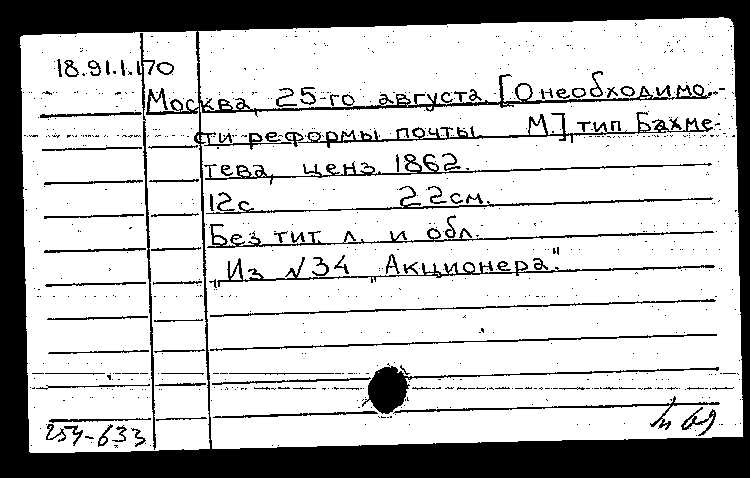 18.91.1.170
Москва, 25-го августа. [О необходимо-
сти реформы почты. М.], тип. Бахме-
тева, ценз. 1862.
12с. 22см.
Без тит. л. и обл.
"Из №34 "Акционера".
254-633